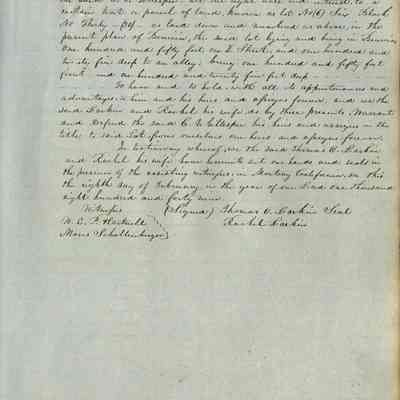 certain tract or parcel of land, known as Lot No (6) Six Block
No Thirty – 34 – as laid down and numbered as above, in the
present plan of Sonoma, the said lot lying and being in Sonoma
one hundred and fifty feet on D Street, and one hundred and
twenty five deep to an alley, being one hundred and fifty feet
front and one hundred and twenty five feet deep
To have and to hold with all its appurtenances and
advantages to him and his heirs and assigns forever, and we the
said Larkin and Rachel his wife do by these presents, Warrant
and Defend the said C. V. Gillespie his heirs and assigns in the
title to said Lot from ourselves our heirs and assigns forever
In testimony whereof, we the said Thomas O. Larkin
and Rachel his wife have hereunto set our hands and seals in
the presence of the assisting witnesses, in Monterey California, on this
the eighth day of February in the year of our Lord one thousand
eight hundred and forty nine.
Witness (Signed) Thomas O. Larkin Seal
W. E. P. Hartnell Rachel Larkin
Moses Schallenberger